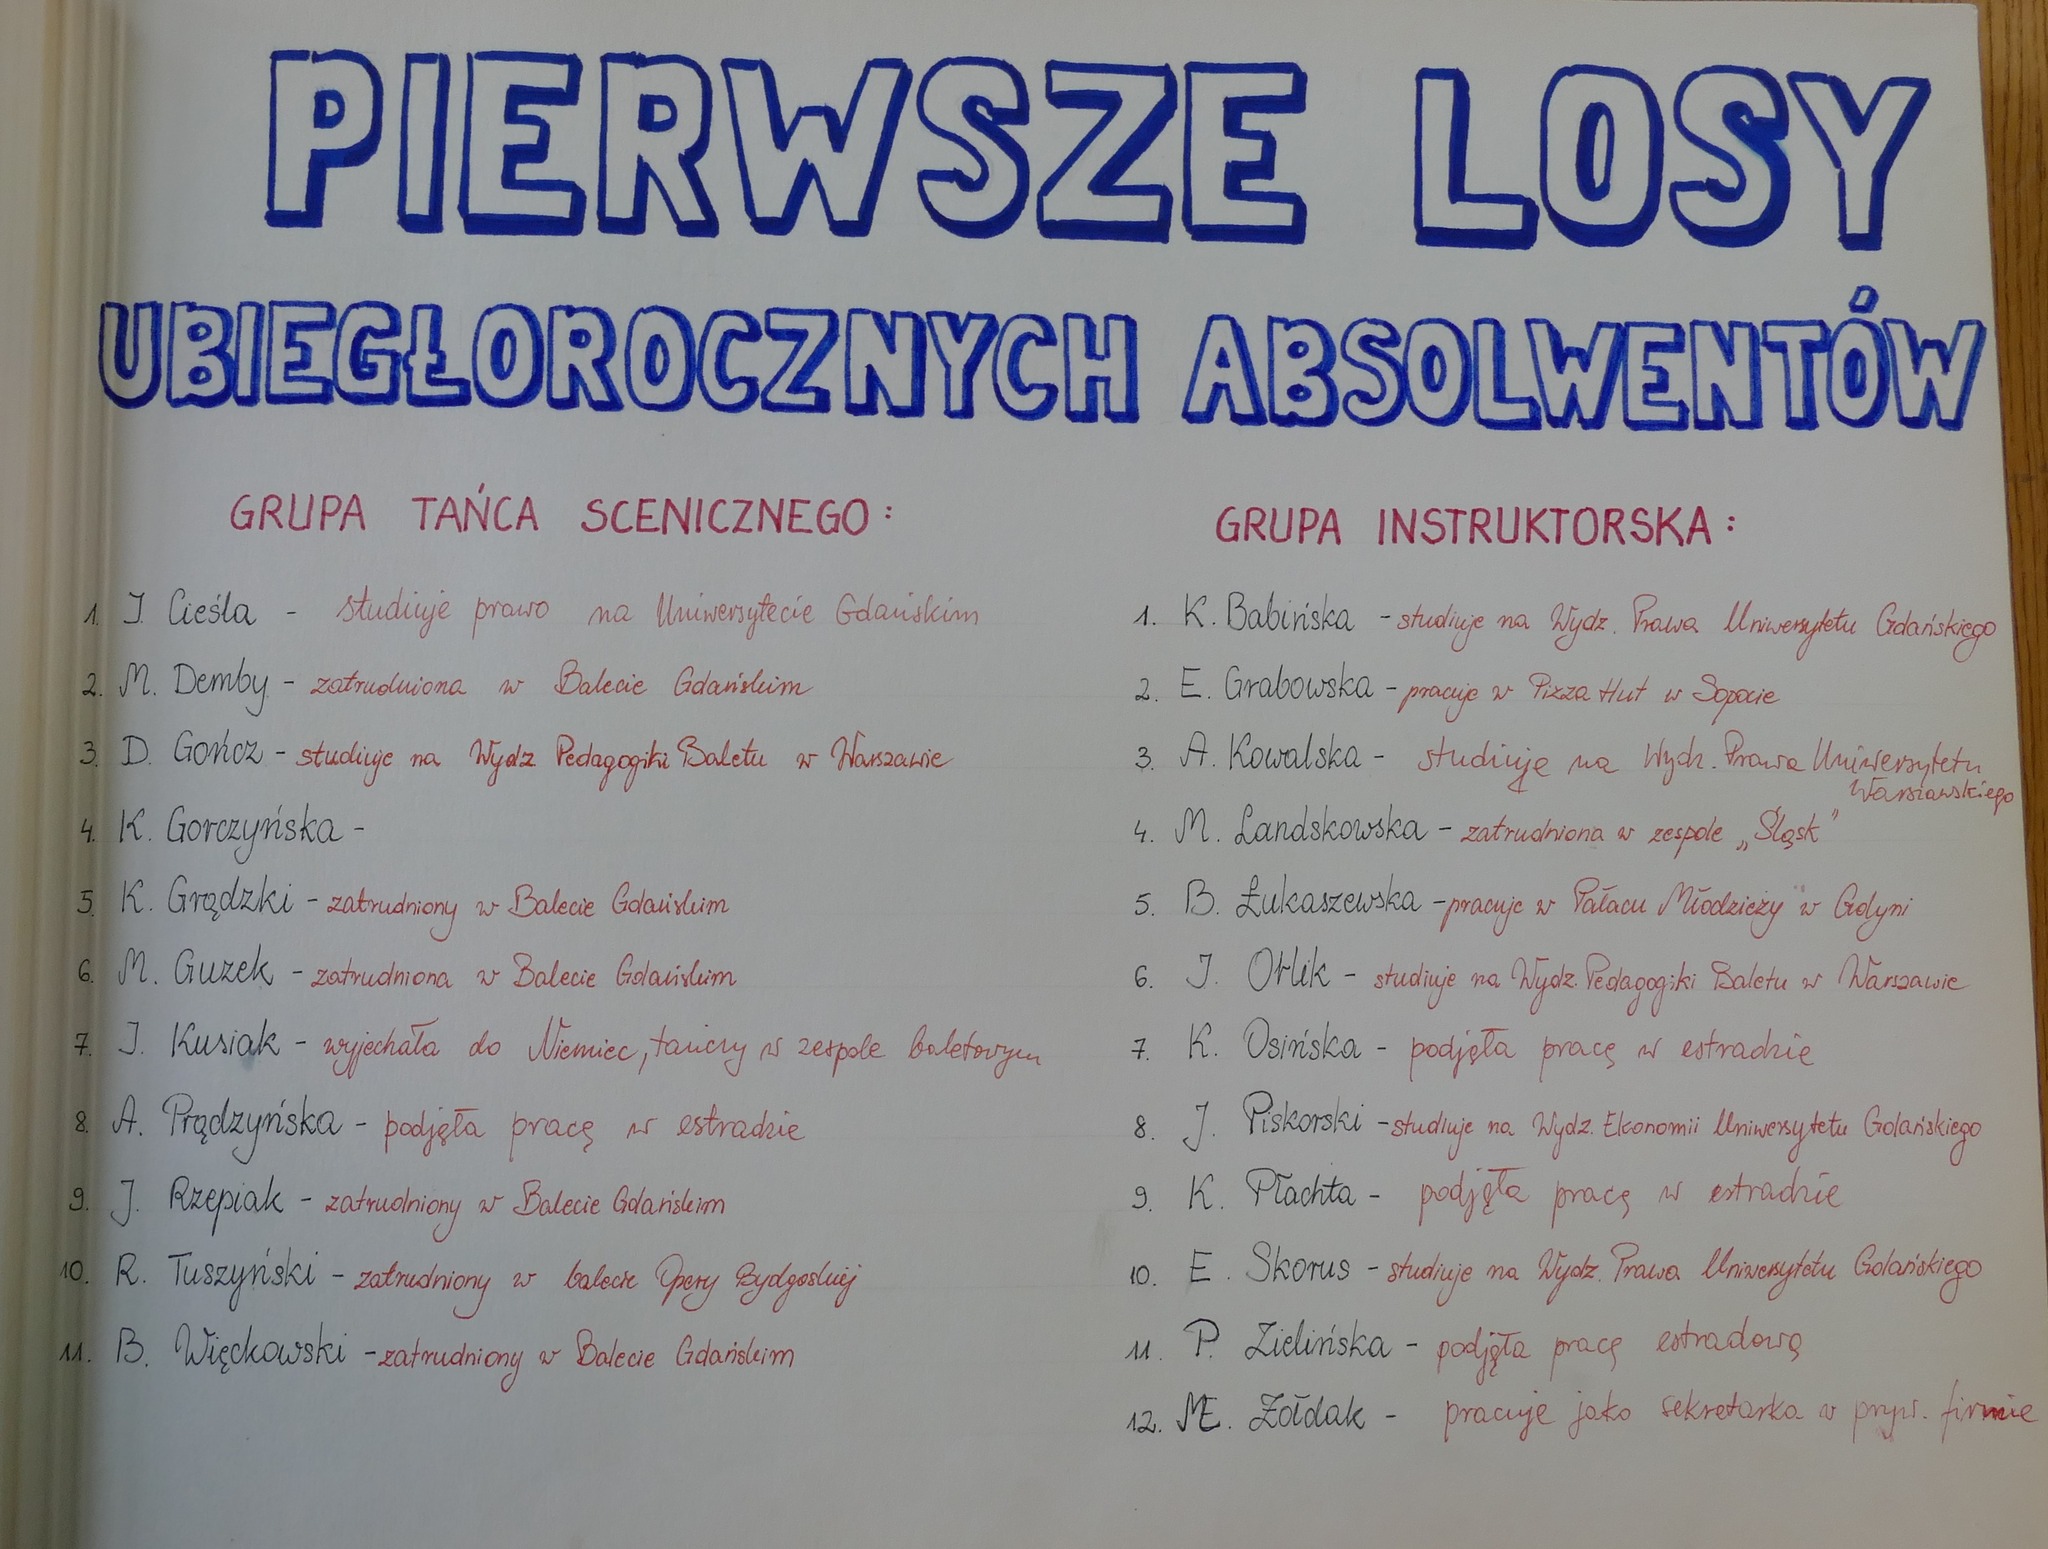 PIERWSZE LOSY
UBIEGŁOROCZNYCH ABSOLWENTÓW
GRUPA TAŃCA SCENICZNEGO:
1. I. Cieśla - studiuje prawo na Uniwersytecie Gdańskim
2. M. Demby - zatrudniona w Balecie Gdańskim
3. D. Gończ - studiuje na Wydz Pedagogiki Baletu w Warszawie
4. K. Gorczyńska -
5. K. Grądzki - zatrudniony w Balecie Gdańskim
6. M. Guzek - zatrudniona w Balecie Gdańskim
7. I. Kusiak - wyjechała do Niemiec, tańczy w zespole baletowym
8. A. Prądzyńska - podjęła pracę w estradzie
9. J. Rzepiak - zatrudniony w Balecie Gdańskim
10. R. Tuszyński - zatrudniony w balecie Opery Bydgoskiej
11. B. Więckowski - zatrudniony w Balecie Gdańskim
GRUPA INSTRUKTORSKA:
1. K. Babińska - studiuje na Wydz. Prawa Uniwersytetu Gdańskiego
2. E. Grabowska - pracuje w Pizza Hut w Sopocie
3. A. Kowalska - studiuje na Wydz. Prawa Uniwersytetu
Warszawskiego
4. M. Landskowska - zatrudniona w zespole „Śląsk"
5. B. Łukaszewska - pracuje w Pałacu Młodzieży w Gdyni
6. I. Orlik - studiuje na Wydz. Pedagogiki Baletu w Warszawie
7. K. Osińska - podjęła pracę w estradzie
8. J. Piskorski - studiuje na Wydz. Ekonomii Uniwersytetu Gdańskiego
9. K. Płachta - podjęła pracę w estradzie
10. E. Skorus - studiuje na Wydz. Prawa Uniwersytetu Gdańskiego
11. P. Zielińska - podjęła pracę estradową
12. ME. Żołdak - pracuje jako sekretarka w pryw. firmie